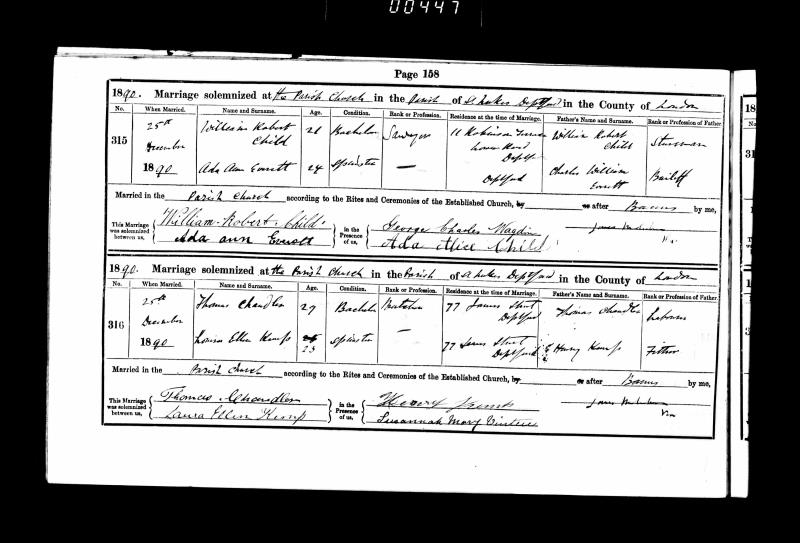 00447
Page 158
1890. Marriage solemnized at the Parish Church in the Parish of St Lukes Deptford in the County of London
No. When Married. Name and Surname. Age. Condition. Rank or Profession. Residence at the time of Marriage. Father's Name and Surname. Rank or Profession of Father.
315 25th December 1890 William Robert Child 28 Bachelor Sawyer 11 Robinson Lower Road Deptf William Robert Child
Ada Ann Everett 24 Spinster — Deptford Charles William Everett Bailiff
Married in the Parish Church according to the Rites and Ceremonies of the Established Church, by or after Banns by me,
This Marriage was solemnized between us, William Robert Child in the Presence of us, George Charles
Ada ann Everett Ada Alice Child
1890. Marriage solemnized at the Parish Church in the Parish of St Lukes Deptford in the County of London
No. When Married. Name and Surname. Age. Condition. Rank or Profession. Residence at the time of Marriage. Father's Name and Surname. Rank or Profession of Father.
316 25th December 1890 Thomas Chandler 29 Bachelor Butcher 77 James Street Deptford Thomas Chandler Labourer
Ellen Kemp 23 Spinster — 77 James Street Deptford Henry Kemp Fitter
Married in the Parish Church according to the Rites and Ceremonies of the Established Church, by or after Banns by me,
This Marriage was solemnized between us, Thomas Chandler in the Presence of us, Henry Kemp
Laura Ellen Kemp Susannah Mary
18
No.
31
18
No.